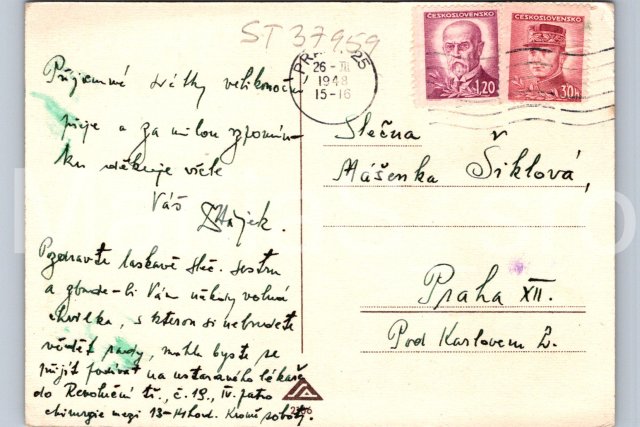 ST 37959
PRAHA 25
26-III
1948
15-16
ČESKOSLOVENSKO
1,20
ČESKOSLOVENSKO
30h
Příjemné svátky velikonoční
přeje a za milou vzpomín-
ku děkuje vřele
Váš
Hájek.
Pozdravte laskavě Sleč. sestru
a zbude-li Vám někdy volná
chvilka, s kterou si nebudete
vědět rady, mohla byste se
přijít podívat na ustaraného lékaře
do Revoluční tř., č. 19, IV. patro
chirurgie mezi 13-14 hod. Kromě soboty.
Slečna
Mášenka Šiklová,
Praha XII.
Pod Karlovem 2.